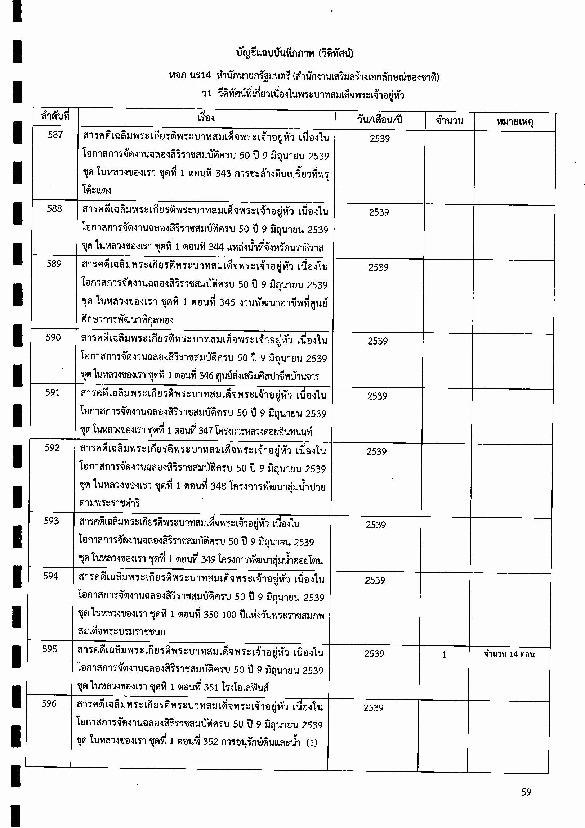 บัญชีแถบบันทึกภาพ (วีดิทัศน์)
หจภ นร14 สำนักนายกรัฐมนตรี (สำนักงานเสริมสร้างเอกลักษณ์ของชาติ)
ว1 วีดิทัศน์ที่เกี่ยวเนื่องในพระบาทสมเด็จพระเจ้าอยู่หัว
ลำดับที่ เรื่อง วัน/เดือน/ปี จำนวน หมายเหตุ
587 สารคดีเฉลิมพระเกียรติพระบาทสมเด็จพระเจ้าอยู่หัว เนื่องใน 2539
โอกาสการจัดงานฉลองสิริราชสมบัติครบ 50 ปี 9 มิถุนายน 2539
ชุด ในหลวงของเรา ชุดที่ 1 ตอนที่ 343 การชะล้างดินเปรี้ยวที่พรุ
โต๊ะแดง
588 สารคดีเฉลิมพระเกียรติพระบาทสมเด็จพระเจ้าอยู่หัว เนื่องใน 2539
โอกาสการจัดงานฉลองสิริราชสมบัติครบ 50 ปี 9 มิถุนายน 2539
ชุด ในหลวงของเรา ชุดที่ 1 ตอนที่ 344 แหล่งน้ำที่จังหวัดนราธิวาส
589 สารคดีเฉลิมพระเกียรติพระบาทสมเด็จพระเจ้าอยู่หัว เนื่องใน 2539
โอกาสการจัดงานฉลองสิริราชสมบัติครบ 50 ปี 9 มิถุนายน 2539
ชุด ในหลวงของเรา ชุดที่ 1 ตอนที่ 345 งานพัฒนาอาชีพที่ศูนย์
ศึกษาการพัฒนาพิกุลทอง
590 สารคดีเฉลิมพระเกียรติพระบาทสมเด็จพระเจ้าอยู่หัว เนื่องใน 2539
โอกาสการจัดงานฉลองสิริราชสมบัติครบ 50 ปี 9 มิถุนายน 2539
ชุด ในหลวงของเรา ชุดที่ 1 ตอนที่ 346 ศูนย์ส่งเสริมศิลปาชีพบ้านจาร
591 สารคดีเฉลิมพระเกียรติพระบาทสมเด็จพระเจ้าอยู่หัว เนื่องใน 2539
โอกาสการจัดงานฉลองสิริราชสมบัติครบ 50 ปี 9 มิถุนายน 2539
ชุด ในหลวงของเรา ชุดที่ 1 ตอนที่ 347 โครงการหลวงดอยอินทนนท์
592 สารคดีเฉลิมพระเกียรติพระบาทสมเด็จพระเจ้าอยู่หัว เนื่องใน 2539
โอกาสการจัดงานฉลองสิริราชสมบัติครบ 50 ปี 9 มิถุนายน 2539
ชุด ในหลวงของเรา ชุดที่ 1 ตอนที่ 348 โครงการพัฒนาลุ่มน้ำปาย
ตามพระราชดำริ
593 สารคดีเฉลิมพระเกียรติพระบาทสมเด็จพระเจ้าอยู่หัว เนื่องใน 2539
โอกาสการจัดงานฉลองสิริราชสมบัติครบ 50 ปี 9 มิถุนายน 2539
ชุด ในหลวงของเรา ชุดที่ 1 ตอนที่ 349 โครงการพัฒนาลุ่มน้ำ
594 สารคดีเฉลิมพระเกียรติพระบาทสมเด็จพระเจ้าอยู่หัว เนื่องใน 2539
โอกาสการจัดงานฉลองสิริราชสมบัติครบ 50 ปี 9 มิถุนายน 2539
ชุด ในหลวงของเรา ชุดที่ 1 ตอนที่ 350 100 ปีแห่งวันพระราชสมภพ
สมเด็จพระบรมราชชนก
595 สารคดีเฉลิมพระเกียรติพระบาทสมเด็จพระเจ้าอยู่หัว เนื่องใน 2539 1 จำนวน 14 ตอน
โอกาสการจัดงานฉลองสิริราชสมบัติครบ 50 ปี 9 มิถุนายน 2539
ชุด ในหลวงของเรา ชุดที่ 1 ตอนที่ 351
596 สารคดีเฉลิมพระเกียรติพระบาทสมเด็จพระเจ้าอยู่หัว เนื่องใน 2539
โอกาสการจัดงานฉลองสิริราชสมบัติครบ 50 ปี 9 มิถุนายน 2539
ชุด ในหลวงของเรา ชุดที่ 1 ตอนที่ 352 การอนุรักษ์ดินและน้ำ (1)
59